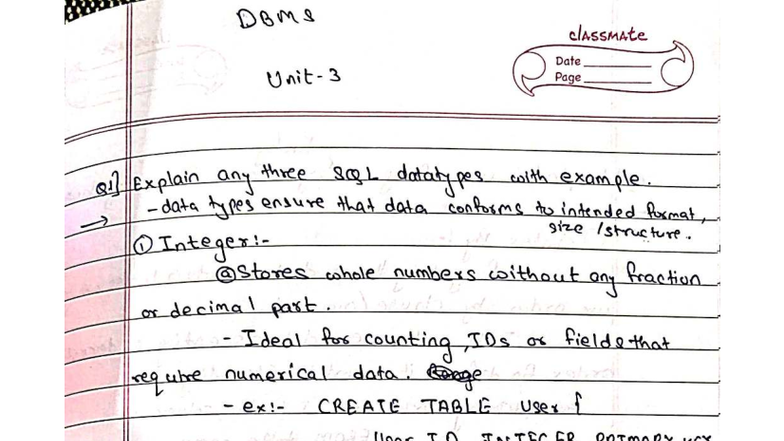 DBMS
classmate
Date
Page
Unit-3
Q1] Explain any three SQL datatypes with example.
→ - data types ensure that data conforms to intended format,
size / structure.
① Integer:-
@ Stores whole numbers without any fraction
or decimal part.
- Ideal for counting, IDs or fields that
require numerical data.
- ex:- CREATE TABLE User {
User ID INTEGER PRIMARY KEY